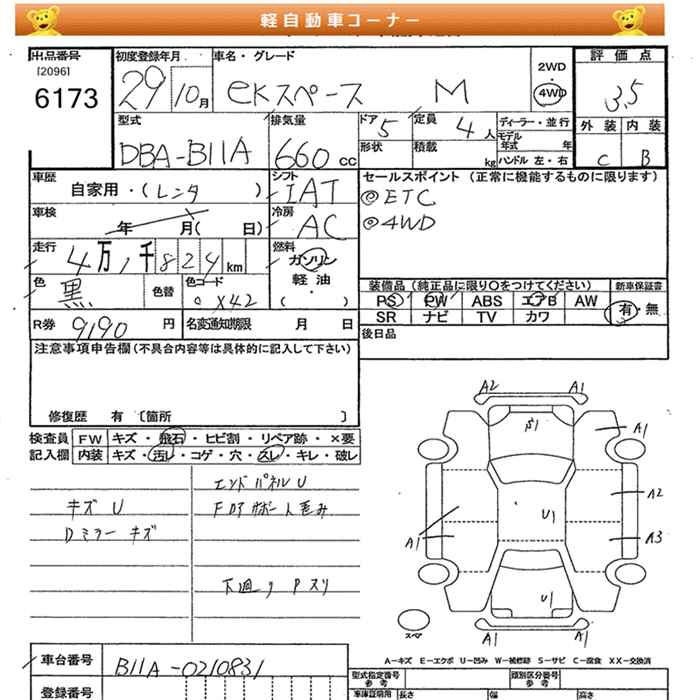 軽自動車コーナー
出品番号 初度登録年月 車名・グレード 評価点
[2096] 2WD
6173 29 10月 ekスペース M 4WD 3.5
型式 排気量 ドア 5 定員 4人 ディーラー・並行 外装 内装
モデル年式 年
DBA-B11A 660cc 形状 積載 kg ハンドル 左・右 C B
車歴 シフト セールスポイント (正常に機能するものに限ります)
自家用・(レンタ ) IAT ◎ETC
車検 冷房 ◎4WD
年 月( 日) AC
走行 4万1千824km 燃料
ガソリン・
色 黒 色替 色コード X42 軽油・
( ) 装備品(純正品に限り○をつけてください) 新車保証書
PS PW ABS エアB AW 有・無
R券 9190 円 名変通知期限 月 日 SR ナビ TV カワ
注意事項申告欄(不具合内容等は具体的に記入して下さい) 後日品
修復歴 有 〔箇所 〕
検査員 FW キズ・飛石・ヒビ割・リペア跡・×要
記入欄 内装 キズ・汚レ・コゲ・穴・スレ・キレ・破レ
エンドパネルU
キズ U
Dミラーキズ
下廻り Pスリ
A2 A1
S1 A1
A2
U1
A1 A3
U1
スペア A1 A1
A-キズ E-エクボ U-凹み W-補修跡 S-サビ C-腐食 XX-交換済
車台番号 B11A-0210831 型式指定番号 参考 類別区分番号 参考
登録番号 車庫証明用 長さ 幅 高さ